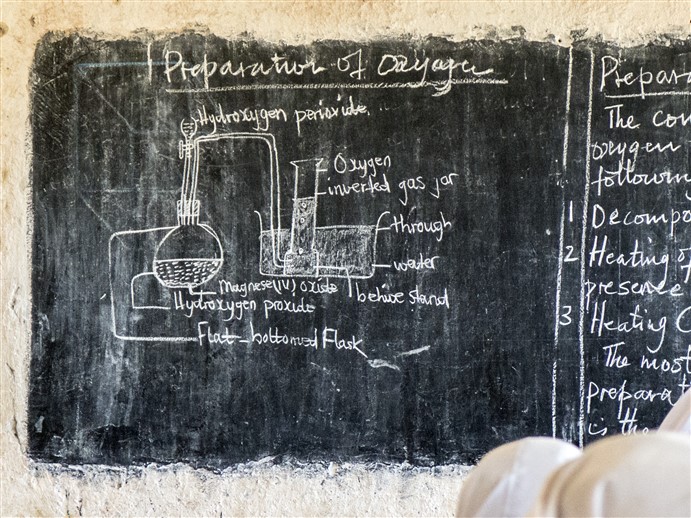 Preparation of Oxygen
Hydroxygen perioxide.
Oxygen
inverted gas jar
through
water
behive stand
Magnese(IV) oxide
Hydroxygen proxide
Flat-bottomed Flask
Prepara
The con
oxygen
followin
1 Decompo
2 Heating of
presence
3 Heating
The most
prepara
is the